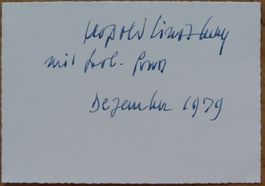 Leopold Lindtberg
mit frdl. Gruss
Dezember 1979